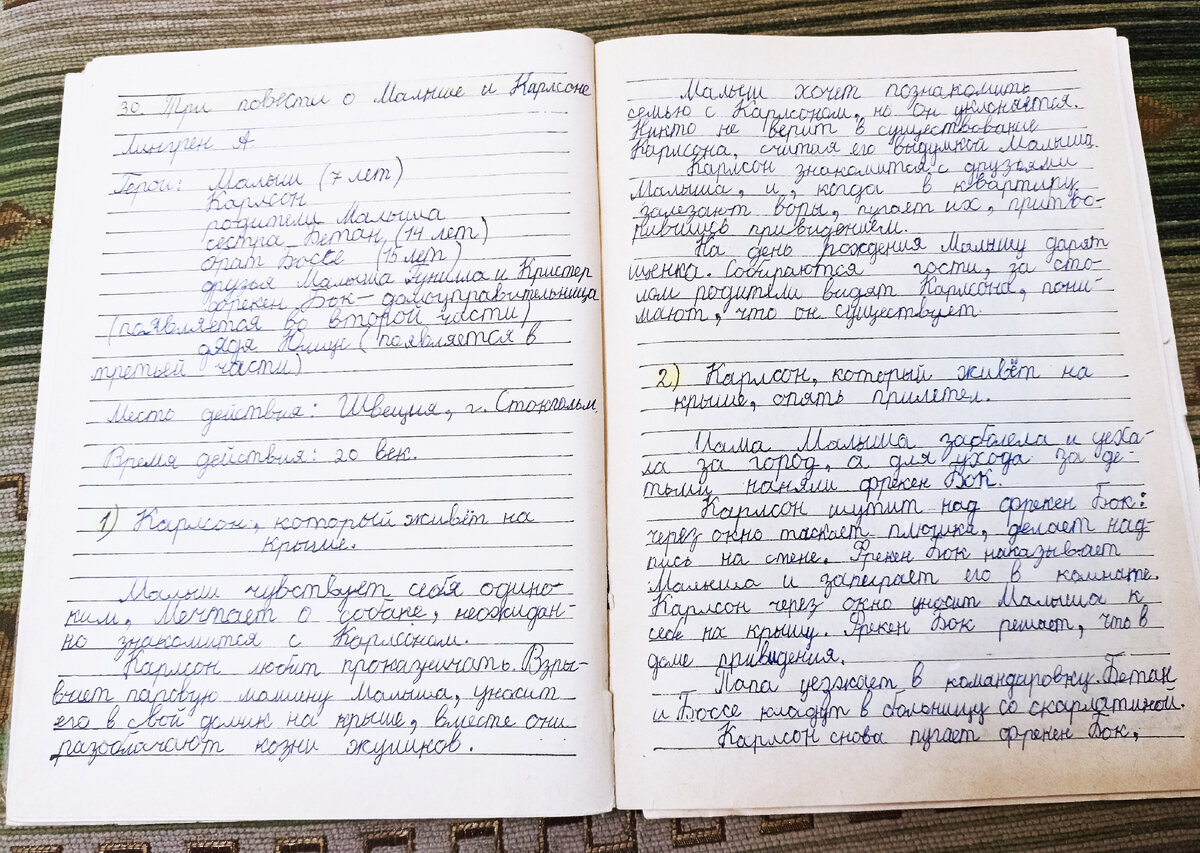 30. Три повести о Малыше и Карлсоне
Лингрен А.
Герои: Малыш (7 лет)
Карлсон
родители Малыша
сестра Бетан (14 лет)
брат Боссе (15 лет)
друзья Малыша Гунилла и Кристер
фрекен Бок - домоуправительница
(появляется во второй части)
дядя Юлиус (появляется в
третьей части)
Место действия: Швеция, г. Стокгольм.
Время действия: 20 век.
1) Карлсон, который живёт на
крыше.
Малыш чувствует себя одино-
ким, Мечтает о собаке, неожидан-
но знакомится с Карлсоном.
Карлсон любит проказничать. Взры-
вает паровую машину Малыша, уносит
его в свой домик на крыше, вместе они
разоблачают козни жуликов.
Малыш хочет познакомить
семью с Карлсоном, но он уклоняется.
Никто не верит в существование
Карлсона, считая его выдумкой Малыша.
Карлсон знакомится с друзьями
Малыша, и, когда в квартиру
залезают воры, пугает их, притво-
рившись привидением.
На день рождения Малышу дарят
щенка. Собираются гости, за сто-
лом родители видят Карлсона, пони-
мают, что он существует.
2) Карлсон, который живёт на
крыше, опять прилетел.
Мама Малыша заболела и уеха-
ла за город, а для ухода за де-
тьми наняли фрекен Бок.
Карлсон шутит над фрекен Бок:
через окно таскает плюшки, делает над-
пись на стене. Фрекен Бок наказывает
Малыша и запирает его в комнате.
Карлсон через окно уносит Малыша к
себе на крышу. Фрекен Бок решает, что в
доме привидения.
Папа уезжает в командировку. Бетан
и Боссе кладут в больницу со скарлатиной.
Карлсон снова пугает фрекен Бок,